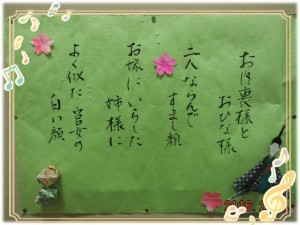 お内裏様と
おひな様
二人ならんで
すまし顔
お嫁にいらした
姉様に
よく似た官女の
白い顔